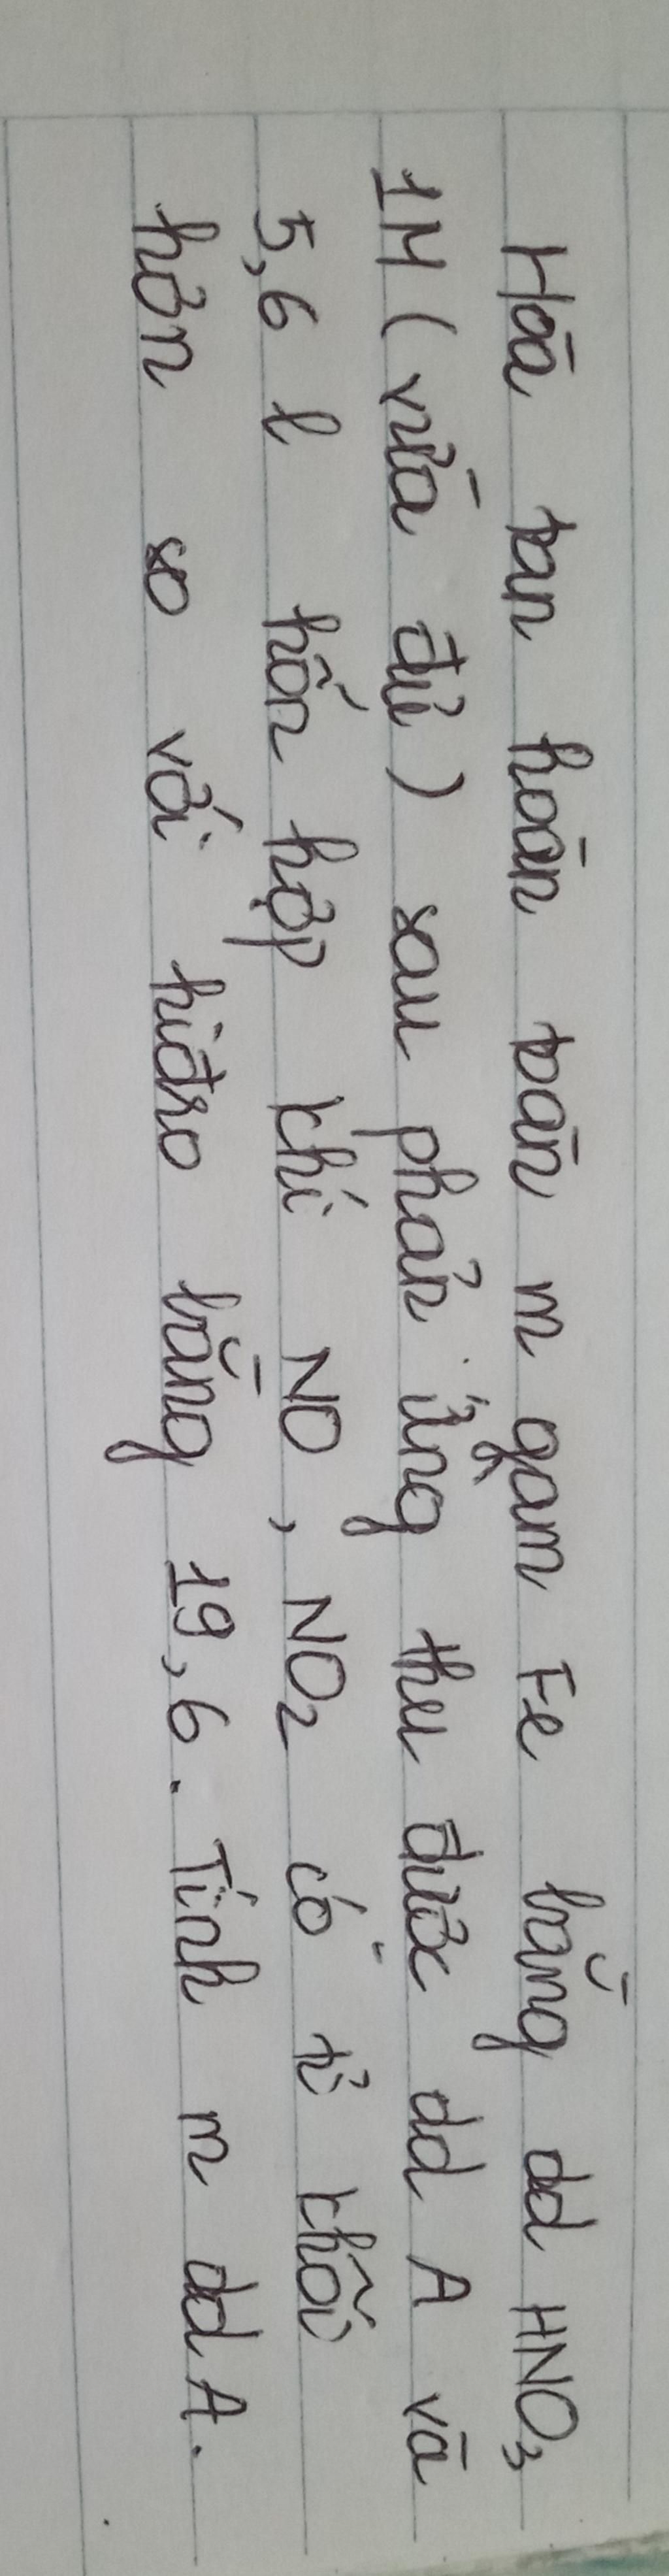 Hòa tan hoàn toàn m gam Fe bằng dd HNO3
1M (vừa đủ) sau phản ứng thu được dd A và
5,6 l hỗn hợp khí NO, NO2 có tỉ khối
hơn so với hiđro bằng 19,6. Tính m dd A.